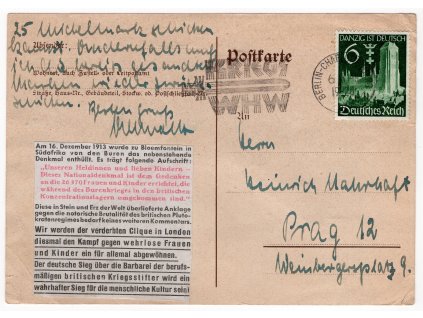 25 Michelmarke schicken
Absender:
Wohnort, auch Zustell- oder Leitpostamt
Straße, Hausnr., Gebäudeteil, Stockw. od. Postschließfach-Nr.
Herzl. Gruß
Am 16. Dezember 1913 wurde zu Bloemfontein in
Südafrika von den Buren das nebenstehende
Denkmal enthüllt. Es trägt folgende Aufschrift:
„Unseren Heldinnen und lieben Kindern –
Dieses Nationaldenkmal ist dem Gedenken
an die 26370 Frauen und Kinder errichtet, die
während des Burenkrieges in den britischen
Konzentrationslagern umgekommen sind."
Diese in Stein und Erz der Welt überlieferte Anklage
gegen die notorische Brutalität des britischen Pluto-
kratenregimes bedarf keines weiteren Kommentars.
Wir werden der verderbten Clique in London
diesmal den Kampf gegen wehrlose Frauen
und Kinder ein für allemal abgewöhnen.
Der deutsche Sieg über die Barbarei der berufs-
mäßigen britischen Kriegsstifter wird ein
wahrhafter Sieg für die menschliche Kultur sein!
Postkarte
WHW
BERLIN-CHA
DANZIG IST DEUTSCH
6
Deutsches Reich
An
Herrn
Heinrich
Prag 12
Weinbergersplatz 9.